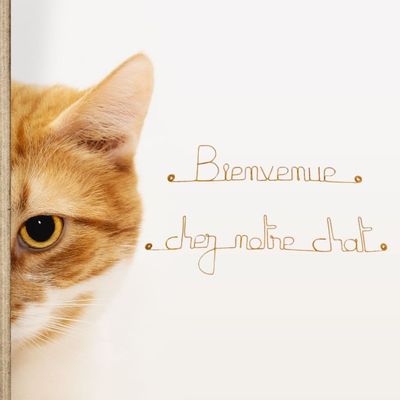 Bienvenue
chez notre chat